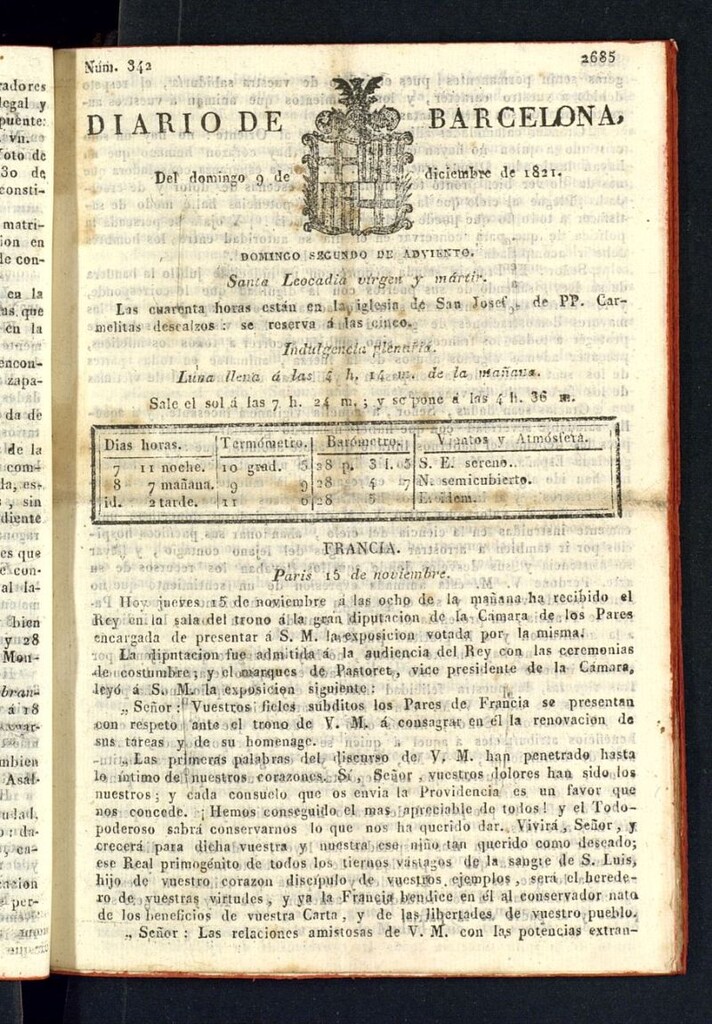 radores
legal y
puente:
. VII.
foto de
30 de
consti-
matri-
ion en
de con-
en la
as que
en la
encon-
zapa-
da de
de la
com-
la, es-
, sin
diente
es que
e con-
al la-
bien
y 28
Mon-
bran-
á 18
mbien
Asal-
udad.
o : da-
y ca-
cacion
e per-
Núm. 342
2685
DIARIO DE BARCELONA,
Del domingo 9 de diciembre de 1821.
DOMINGO SEGUNDO DE ADVIENTO.
Santa Leocadia virgen y mártir.
Las cuarenta horas están en la iglesia de San Josef, de PP. Car-
melitas descalzos : se reserva á las cinco.
Indulgencia plenaria.
Luna llena á las 4 h. 14 m. de la mañana.
Sale el sol á las 7 h. 24 m. ; y se pone á las 4 h. 36 m.
Dias horas. Termómetro. Barómetro. Vientos y Atmósfera.
7 11 noche. 10 grad. 5 28 p. 3 l. 5 S. E. sereno.
8 7 mañana. 9 9 28 4 7 N. semicubierto.
id. 2 tarde. 11 6 28 5 E. idem.
FRANCIA.
Paris 15 de noviembre.
Hoy jueves 15 de noviembre á las ocho de la mañana ha recibido el
Rey en la sala del trono á la gran diputacion de la Cámara de los Pares
encargada de presentar á S. M. la exposicion votada por la misma.
La diputacion fue admitida á la audiencia del Rey con las ceremonias
de costumbre; y el marques de Pastoret, vice presidente de la Cámara,
leyó á S. M. la exposicion siguiente :
„ Señor : Vuestros fieles subditos los Pares de Francia se presentan
con respeto ante el trono de V. M. á consagrar en él la renovacion de
sus tareas y de su homenage.
„ Las primeras palabras del discurso de V. M. han penetrado hasta
lo íntimo de nuestros corazones. Sí, Señor, vuestros dolores han sido los
nuestros; y cada consuelo que os envia la Providencia es un favor que
nos concede. ¡Hemos conseguido el mas apreciable de todos! y el Todo-
poderoso sabrá conservarnos lo que nos ha querido dar. Vivirá, Señor, y
crecerá para dicha vuestra y nuestra ese niño tan querido como deseado;
ese Real primogénito de todos los tiernos vástagos de la sangre de S. Luis,
hijo de vuestro corazon discípulo de vuestros ejemplos, será el herede-
ro de vuestras virtudes, y ya la Francia bendice en él al conservador nato
de los beneficios de vuestra Carta, y de las libertades de vuestro pueblo.
„ Señor : Las relaciones amistosas de V. M. con las potencias extran-